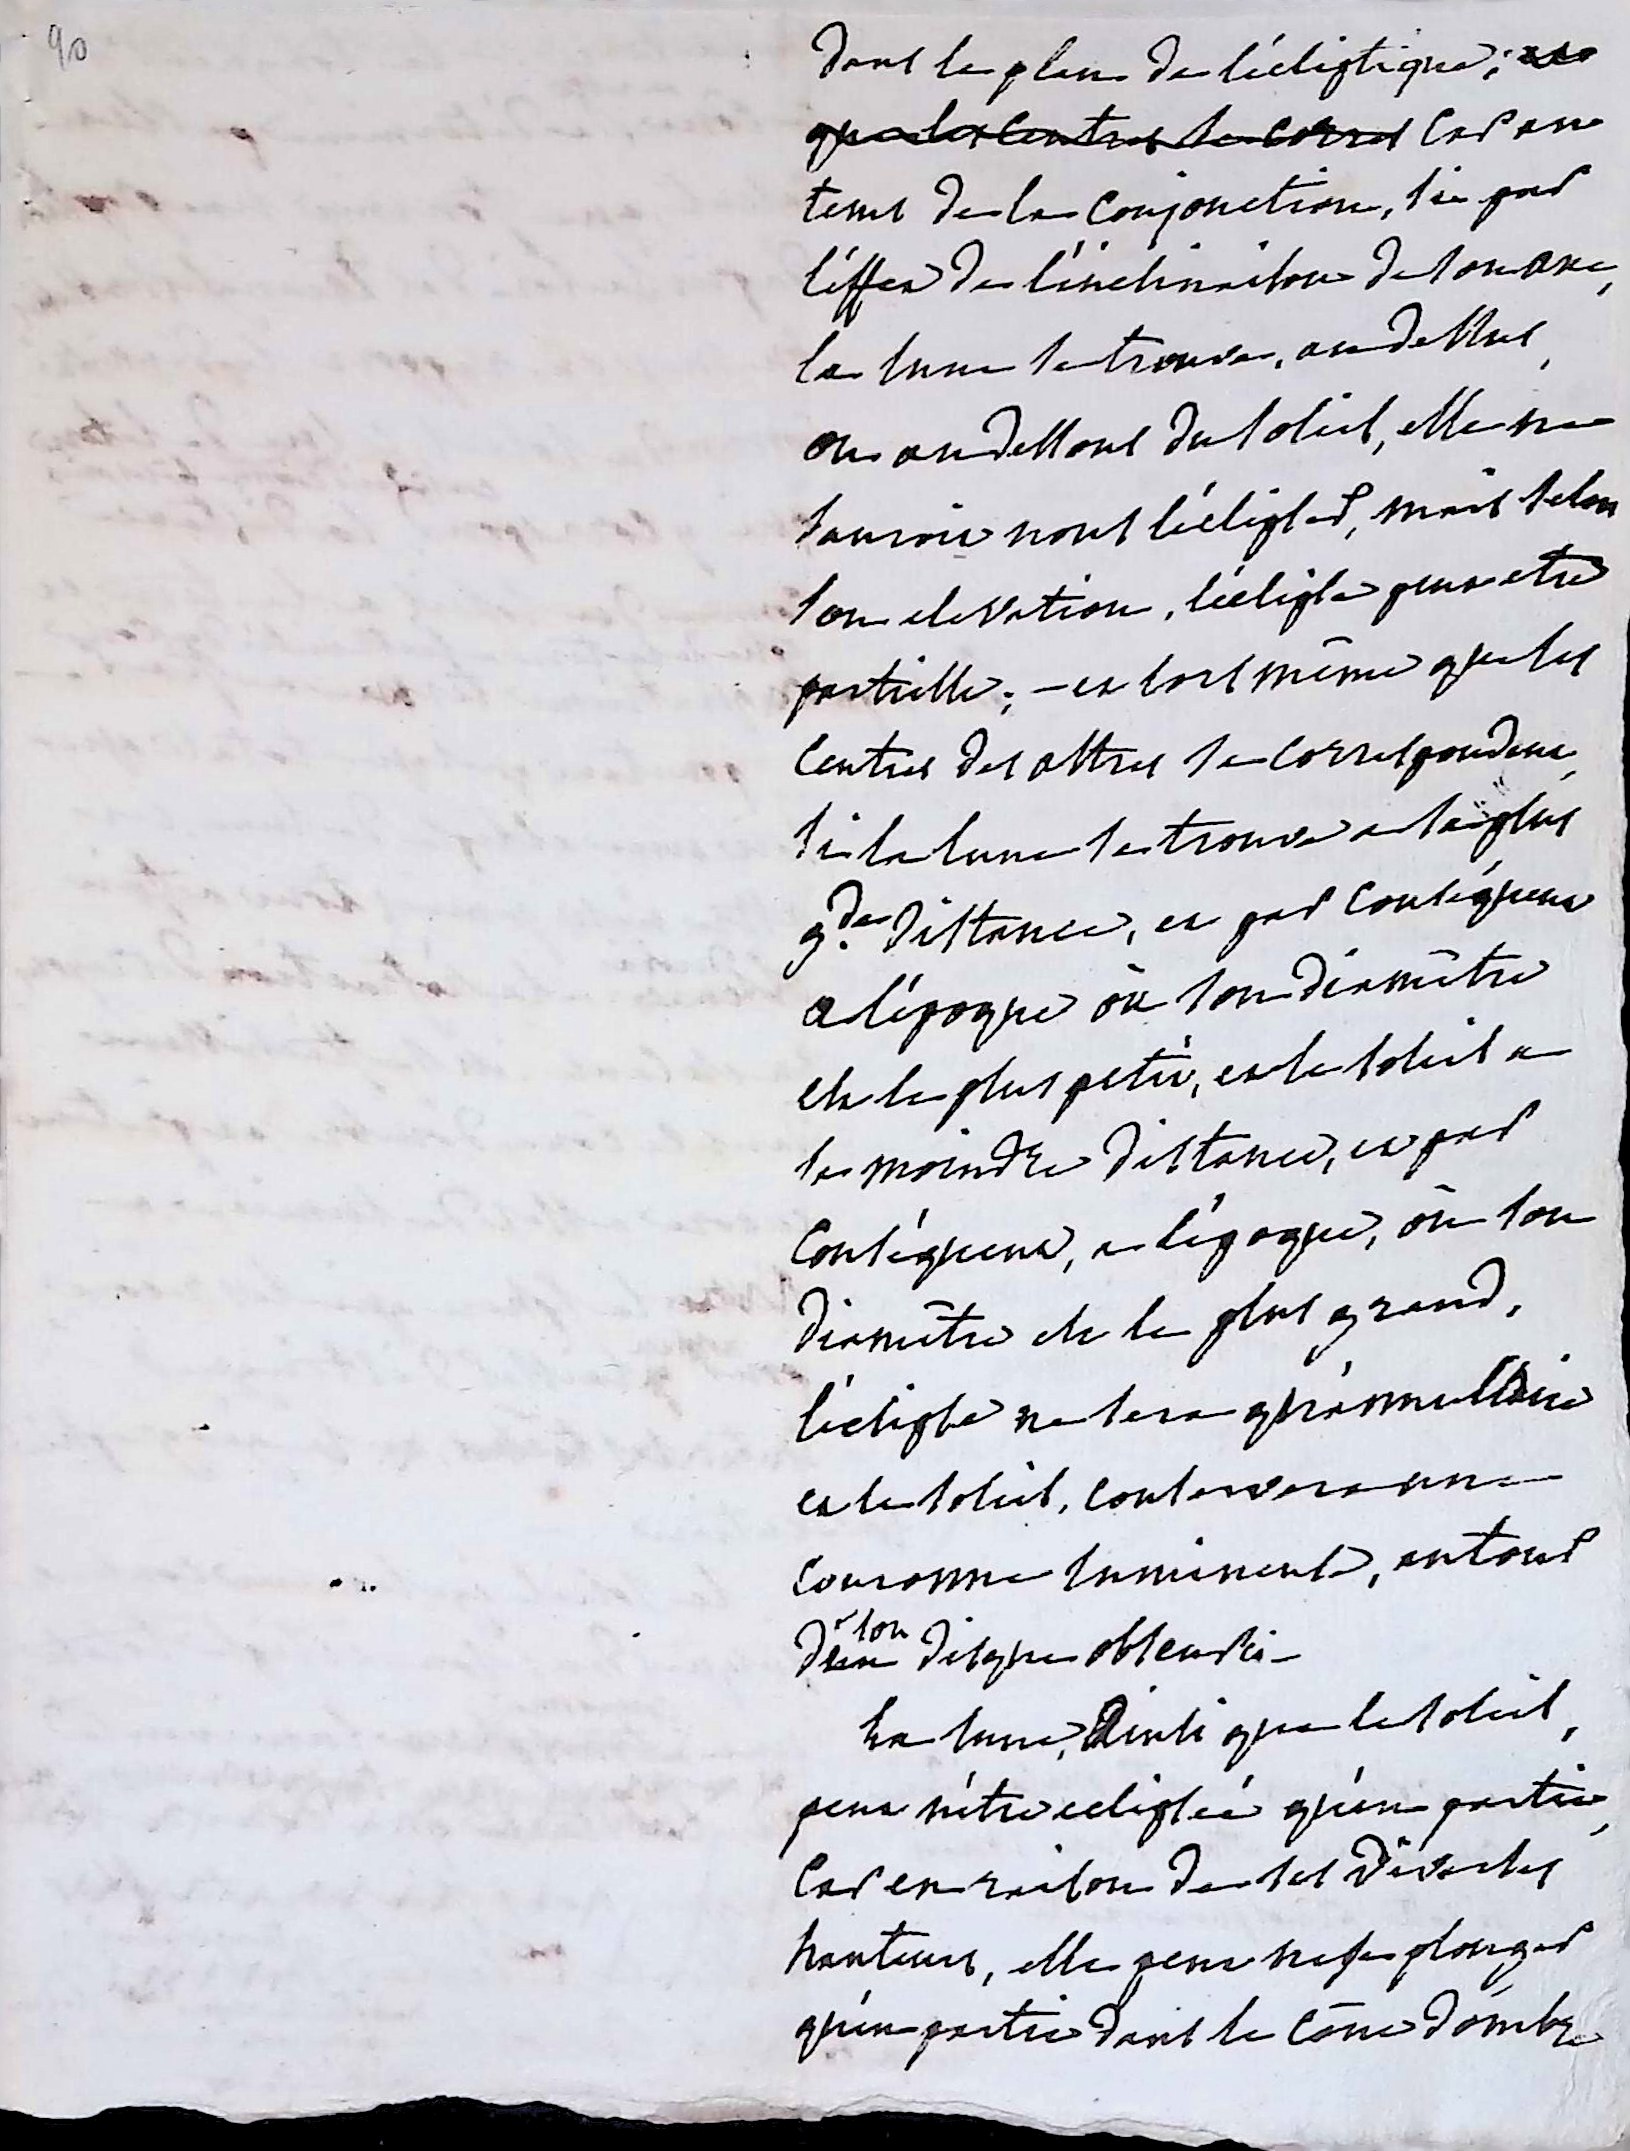 90
dans le plan de l'écliptique; et
que les centres se corres car au
tems de la conjonction, si par
l'effet de l'inclinaison de son axe,
la lune se trouve, au dessus,
ou au dessous du soleil, elle ne
sauroit nous l'éclipser, mais selon
son elevation, l'éclipse peut etre
partielle; – et lors même que les
centres des astres se correspondent,
si la lune se trouve a sa plus
gde distance, et par conséquent
a l'époque où son diamêtre
est le plus petit, et le soleil a
sa moindre distance, et par
conséquent, a l'époque, où son
diamêtre est le plus grand,
l'éclipse ne sera qu'annullaire
et le soleil, conservera une
couronne lumineuse, autour
de son disque obscurci –
La lune, Ainsi que le soleil,
peut n'être eclipsée qu'en partie,
car en raison de ses diverses
hauteurs, elle peut ne se plonger
qu'en partie dans le cône d'ombre